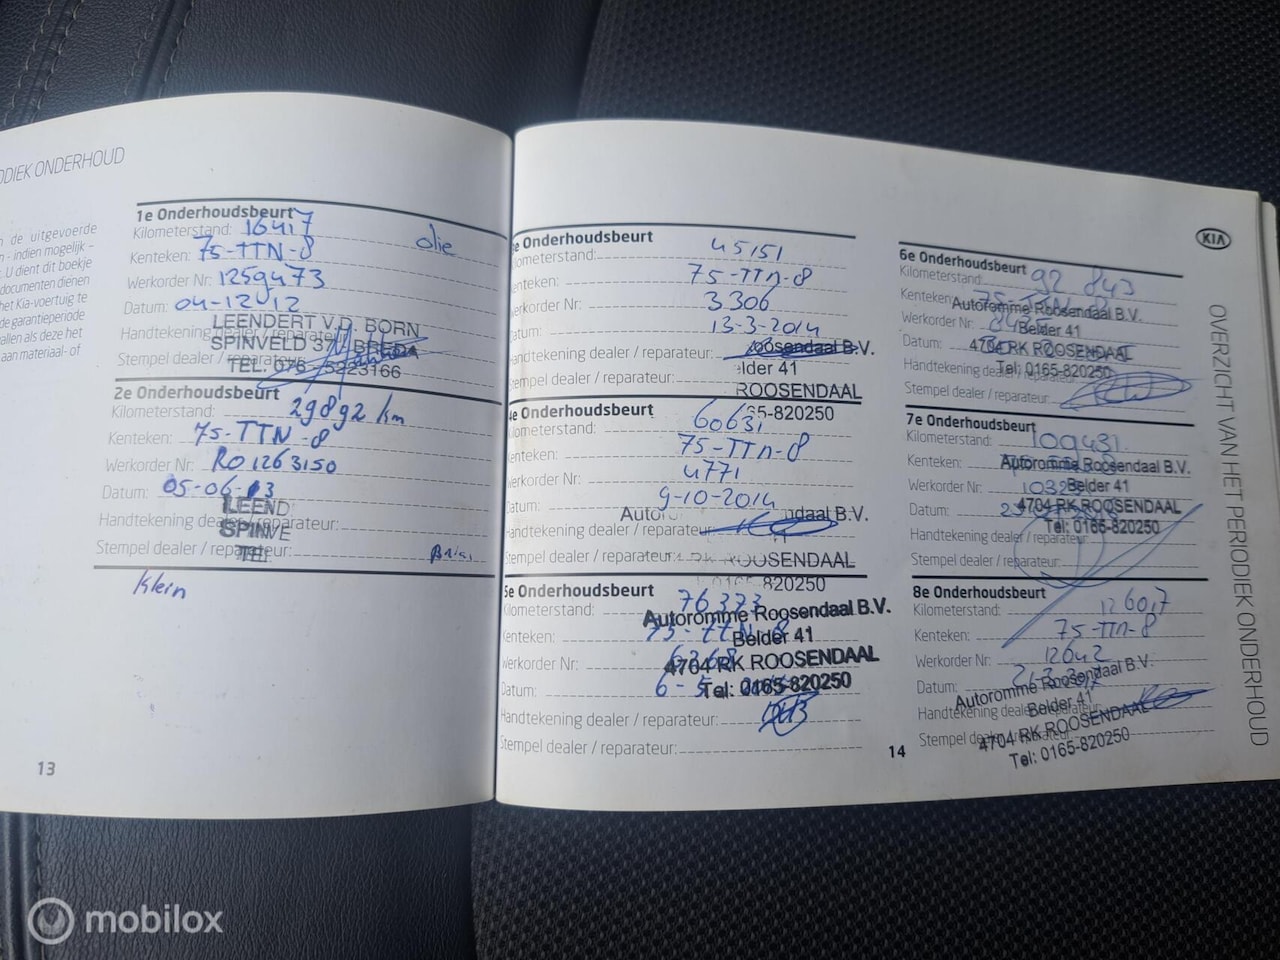 DIEK ONDERHOUD
de uitgevoerde
- indien mogelijk -
U dient dit boekje
documenten dienen
het Kia-voertuig te
de garantieperiode
allen als deze het
aan materiaal- of
1e Onderhoudsbeurt
Kilometerstand: 16417 olie
Kenteken: 75-TTN-8
Werkorder Nr: 1259473
Datum: 04-12 12
Handtekening dealer / reparateur:
Stempel dealer / reparateur:
LEENDERT V.D. BORN
SPINVELD BREDA
TEL. 076 - 5223166
2e Onderhoudsbeurt
Kilometerstand: 29892 km
Kenteken: 75-TTN-8
Werkorder Nr: RO1263150
Datum: 05-06-13
Handtekening dealer / reparateur:
Stempel dealer / reparateur:
LEEND
SPIN
TE
Klein
13
e Onderhoudsbeurt
Kilometerstand: 45151
Kenteken: 75-TTN-8
Werkorder Nr: 3306
Datum: 13-3-2014
Handtekening dealer / reparateur:
Stempel dealer / reparateur:
oosendaal B.V.
elder 41
ROOSENDAAL
65-820250
4e Onderhoudsbeurt
Kilometerstand: 60631
Kenteken: 75-TTN-8
Werkorder Nr: 4771
Datum: 9-10-2014
Handtekening dealer / reparateur:
Stempel dealer / reparateur:
Auto ndaal B.V.
RK ROOSENDAAL
820250
5e Onderhoudsbeurt
Kilometerstand: 76373
Kenteken: 75-TTN-8
Werkorder Nr: 6368
Datum: 6-5
Handtekening dealer / reparateur:
Stempel dealer / reparateur:
Autoromme Roosendaal B.V.
Belder 41
4704 RK ROOSENDAAL
Tel: 0165-820250
14
KIA
6e Onderhoudsbeurt
Kilometerstand: 92 843
Kenteken:
Werkorder Nr:
Datum:
Handtekening dealer / reparateur:
Stempel dealer / reparateur:
Autoromme Roosendaal B.V.
Belder 41
4704 RK ROOSENDAAL
Tel: 0165-820250
7e Onderhoudsbeurt
Kilometerstand: 109431
Kenteken:
Werkorder Nr:
Datum:
Handtekening dealer / reparateur:
Stempel dealer / reparateur:
Autoromme Roosendaal B.V.
Belder 41
4704 RK ROOSENDAAL
Tel: 0165-820250
8e Onderhoudsbeurt
Kilometerstand: 126017
Kenteken: 75-TTN-8
Werkorder Nr: 12042
Datum:
Handtekening dealer / reparateur:
Stempel dealer / reparateur:
Autoromme Roosendaal B.V.
Belder 41
4704 RK ROOSENDAAL
Tel: 0165-820250
OVERZICHT VAN HET PERIODIEK ONDERHOUD
mobilox